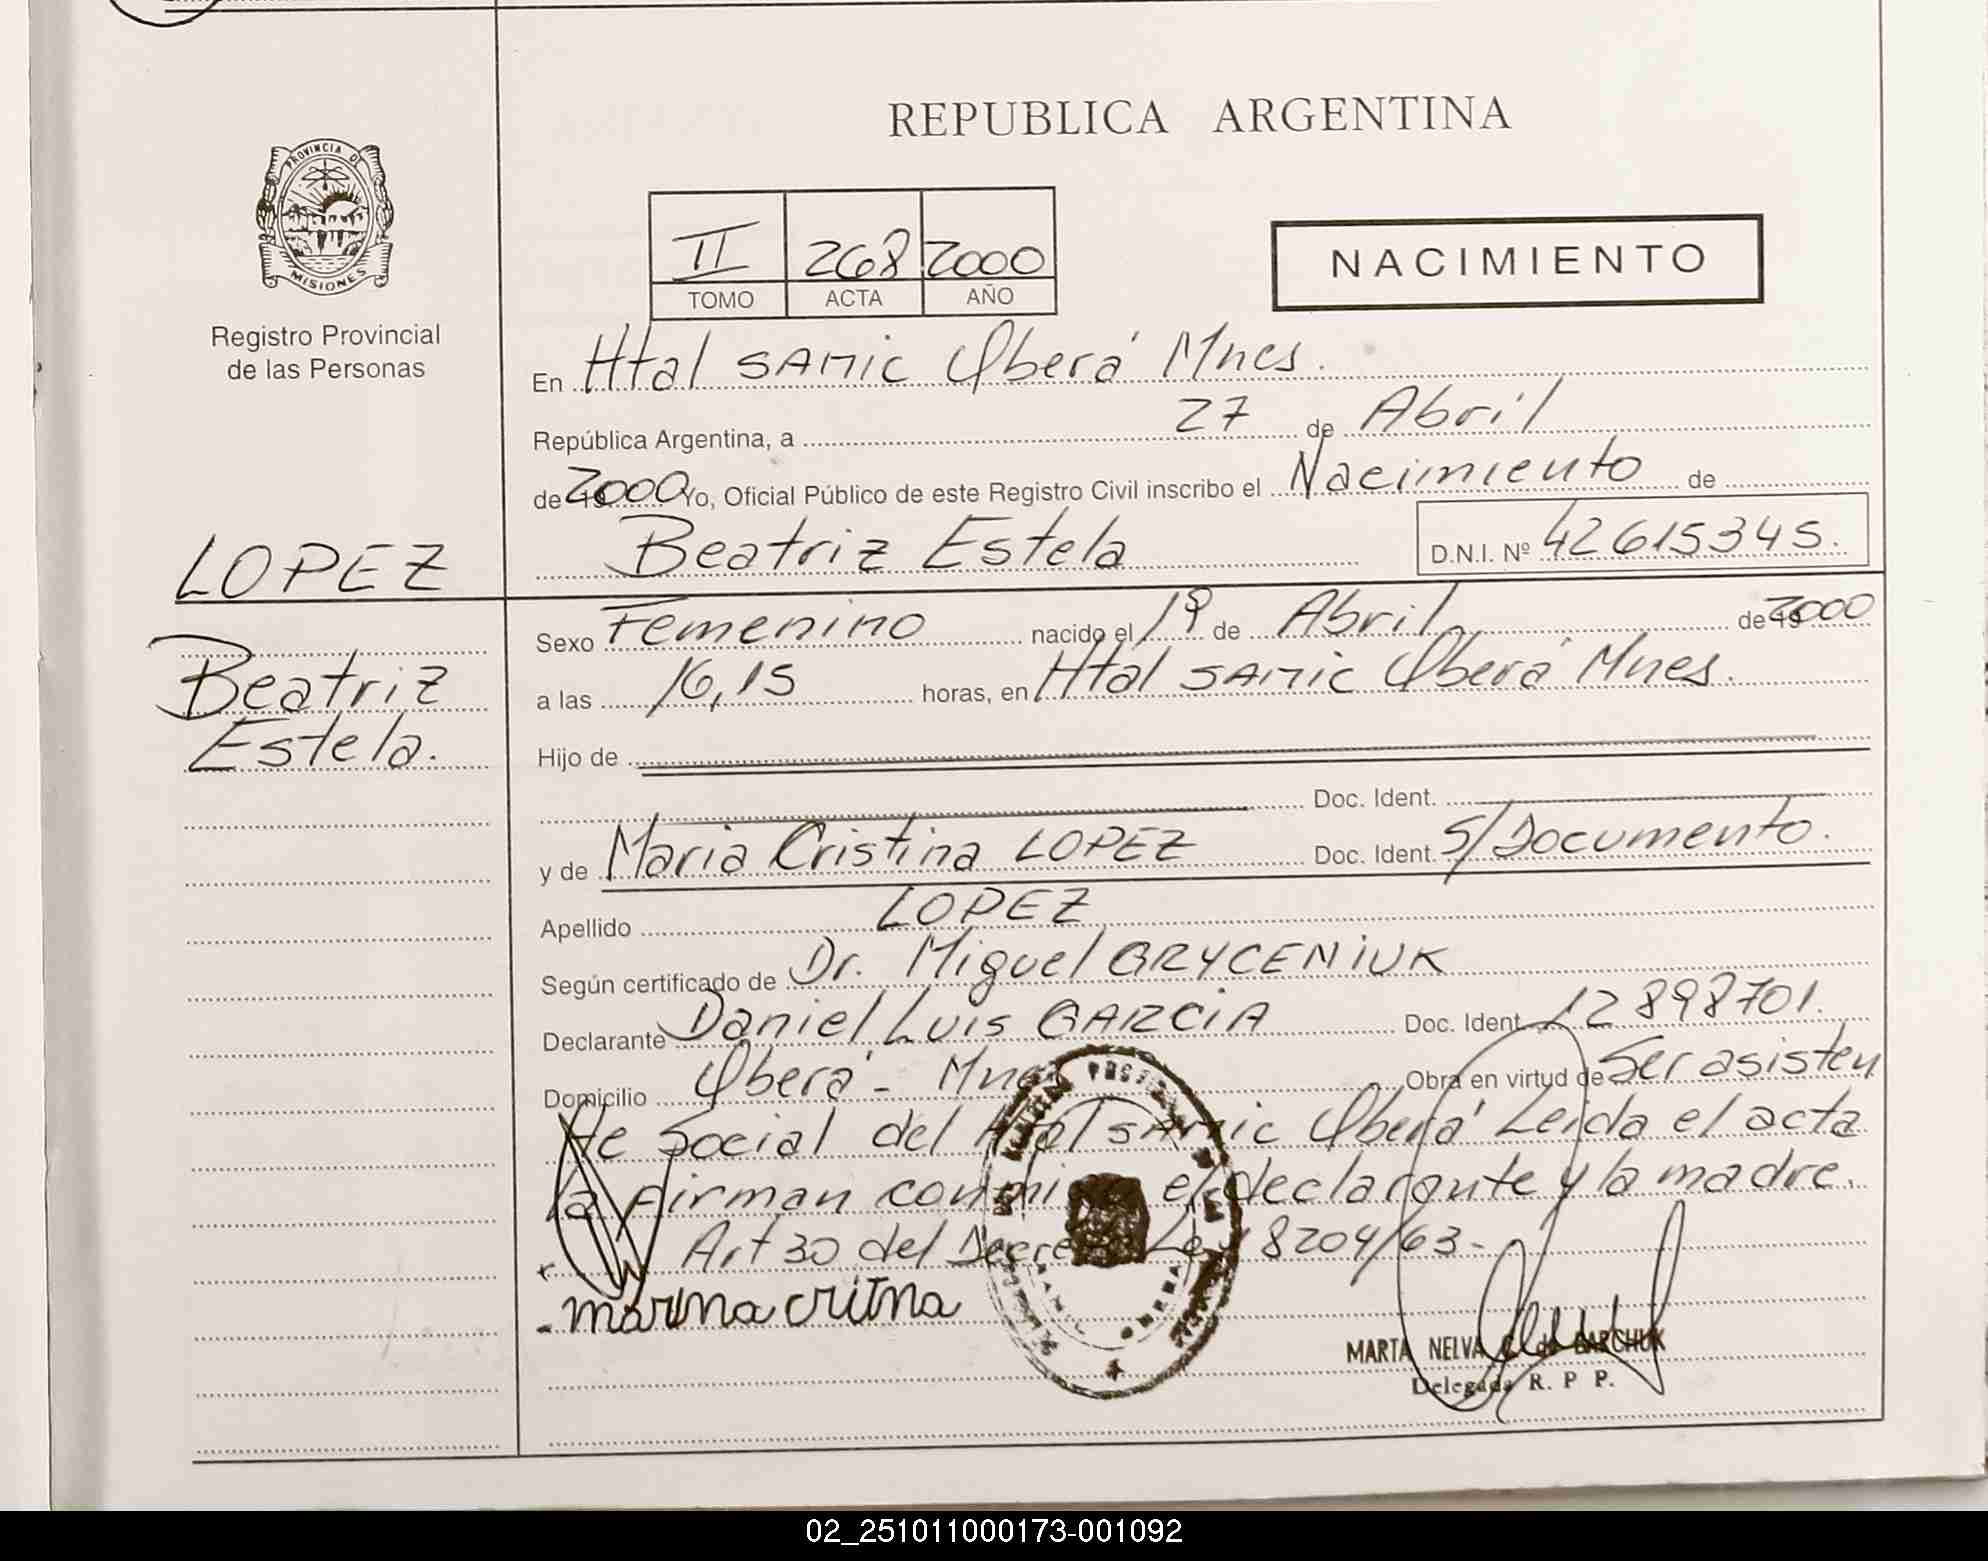 REPUBLICA ARGENTINA
PROVINCIA DE
MISIONES
Registro Provincial
de las Personas
II 268 2000
TOMO ACTA AÑO
NACIMIENTO
En Htal SAMIC Oberá Mnes.
República Argentina, a 27 de Abril
de 19 2000 Yo, Oficial Público de este Registro Civil inscribo el Nacimiento de
Beatriz Estela D.N.I. Nº 42615345.
LOPEZ
Beatriz
Estela.
Sexo Femenino nacido el 19 de Abril de 19 2000
a las 16,15 horas, en Htal SAMIC Oberá Mnes.
Hijo de
Doc. Ident.
y de Maria Cristina LOPEZ Doc. Ident. S/Documento.
Apellido LOPEZ
Según certificado de Dr. Miguel GRYCENIUK
Declarante Daniel Luis GARCIA Doc. Ident. 12898701.
Domicilio Oberá - Mnes Obra en virtud de Ser asisten
te Social del Htal SAMIC Oberá Leida el acta
la firman conmigo el declarante y la madre.
Art 30 del Decreto Ley 8204/63-
marina critna
MARTA NELVA G. de BARCHUK
Delegada R. P. P.
02_251011000173-001092